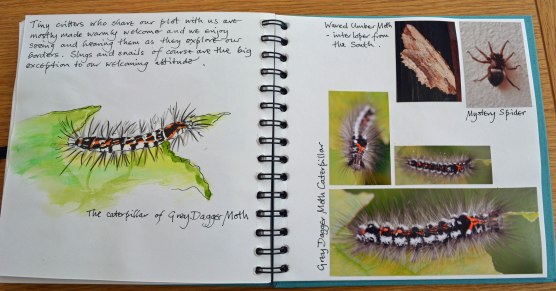 Tiny critters who share our plot with us are
mostly made warmly welcome and we enjoy
seeing and hearing them as they explore our
borders. Slugs and snails of course are the big
exception to our welcoming attitude.
The caterpillar of Grey Dagger Moth
Waved Umber Moth
- interloper from
the South.
Mystery Spider
Grey Dagger Moth Caterpillar